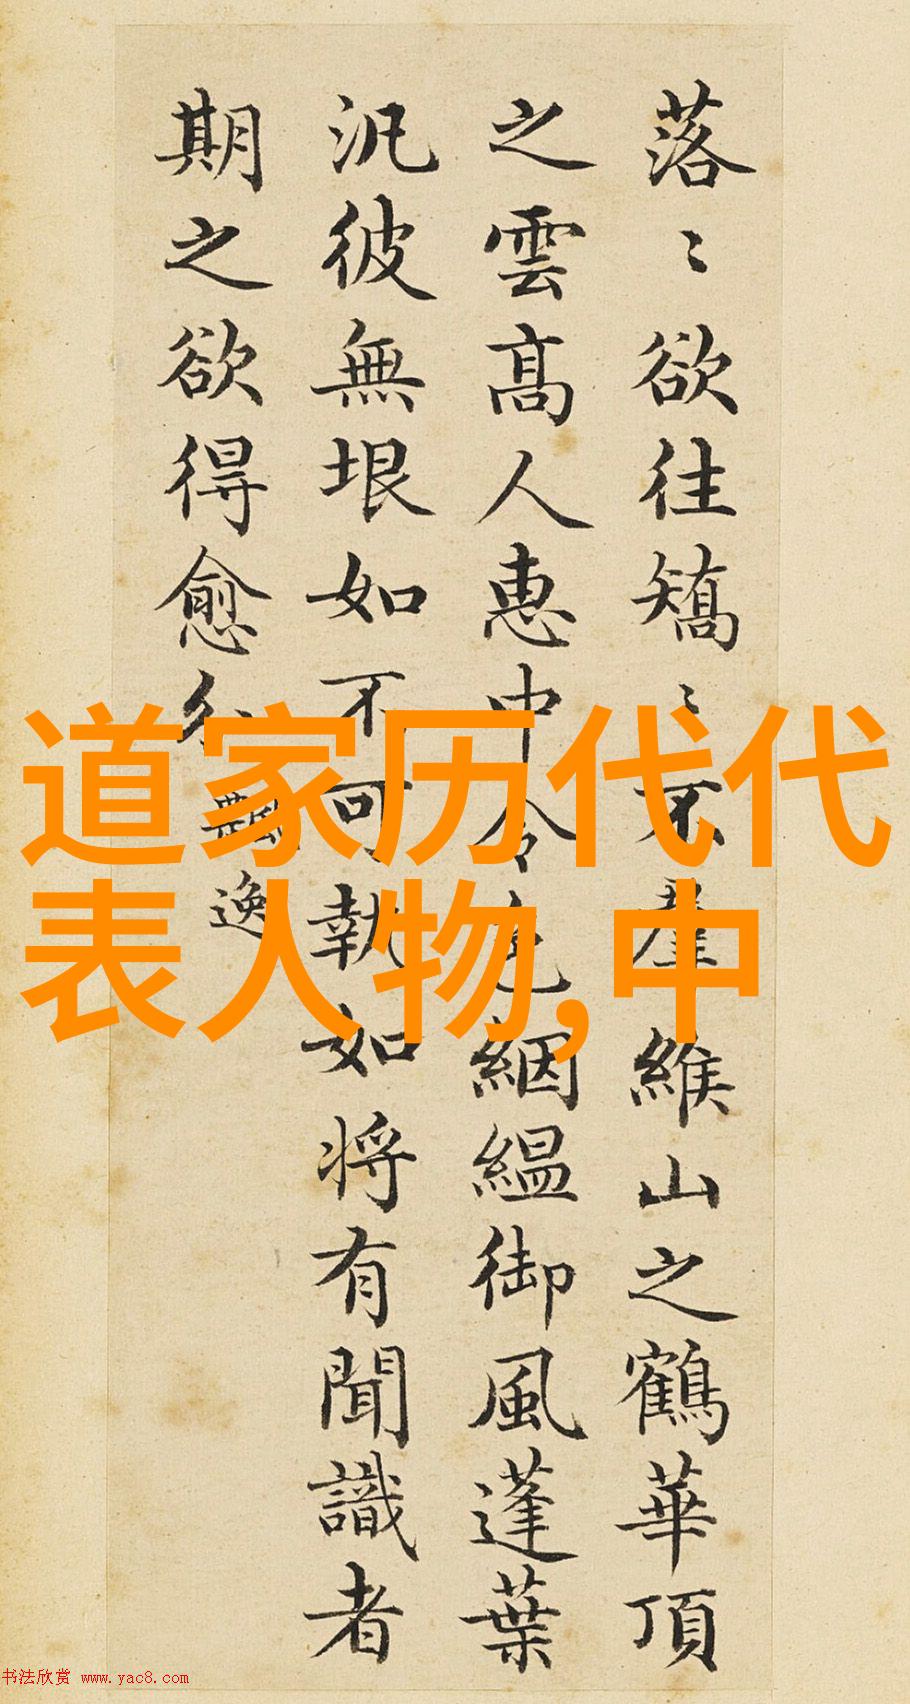 落〻欲往矯〻不羣緱山之鶴華頂
之雲高人惠中令色絪緼御風蓬葉
汎彼無垠如不可執如将有聞識者
期之欲得愈分
飄逸
道家历代代
表人物,中
书法欣赏 www.yac8.com